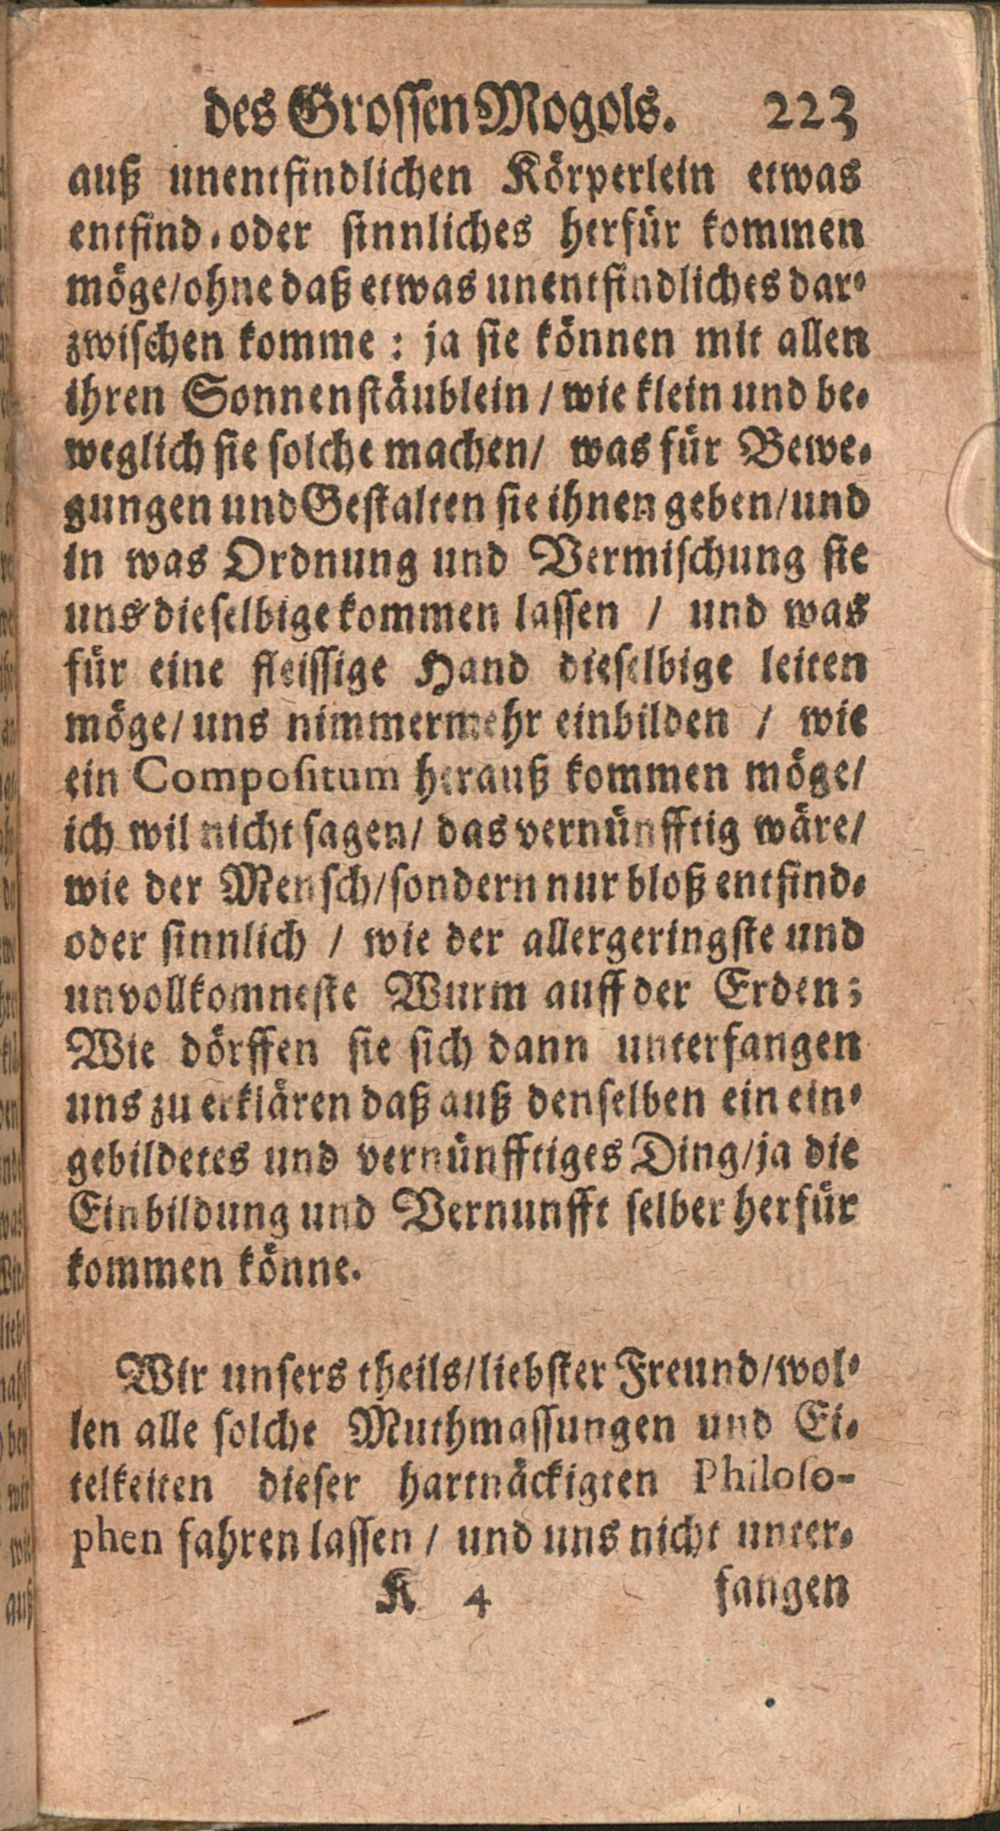 des Grossen Mogols. 223
auß unentfindlichen Körperlein etwas
entfind-oder sinnliches herfür kommen
möge/ohne daß etwas unentfindliches dar-
zwischen komme : ja sie können mit allen
ihren Sonnenstäublein / wie klein und be-
weglich sie solche machen/ was für Bewe-
gungen und Gestalten sie ihnen geben/und
in was Ordnung und Vermischung sie
uns dieselbige kommen lassen / und was
für eine fleissige Hand dieselbige leiten
möge/ uns nimmermehr einbilden / wie
ein Compositum herauß kommen möge/
ich wil nicht sagen/ das vernünfftig wäre/
wie der Mensch/sondern nur bloß entfind-
oder sinnlich / wie der allergeringste und
unvollkomneste Wurm auff der Erden;
Wie dörffen sie sich dann unterfangen
uns zu erklären daß auß denselben ein ein-
gebildetes und vernünfftiges Ding/ja die
Einbildung und Vernunfft selber herfür
kommen könne.
Wir unsers theils/liebster Freund/wol-
len alle solche Muthmassungen und Ei-
telkeiten dieser hartnäckigten Philoso-
phen fahren lassen / und uns nicht unter-
K 4 fangen